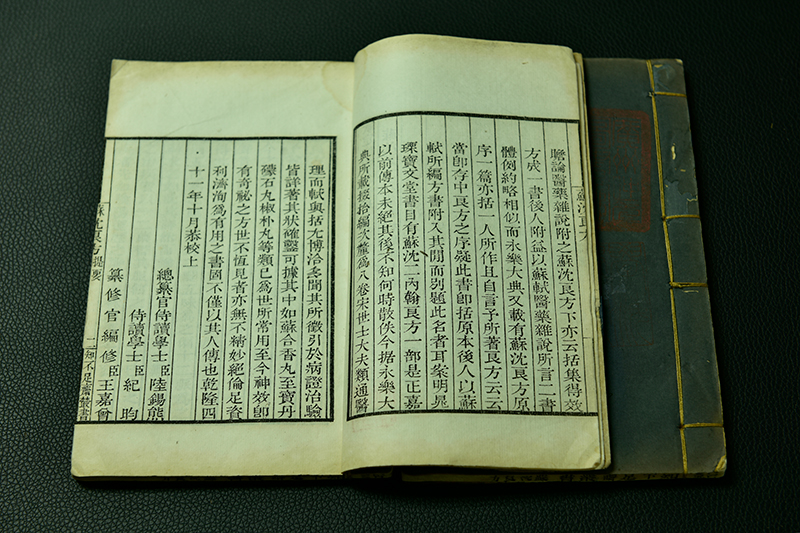 瞻論醫藥雜說附之蘇沈良方下亦云括集得效
方成一書後人附益以蘇軾醫藥雜說所言二書
體例約略相似而永樂大典又載有蘇沈良方原
序一篇亦括一人所作且自言予所著良方云云
當卽存中良方之序疑此書卽括原本後人以蘇
軾所編方書附入其閒而别題此名者耳案明晁
瑮寶文堂書目有蘇沈二內翰良方一部是正嘉
以前傳本未絕其後不知何時散佚今據永樂大
典所載掇拾編次釐爲八卷宋世士大夫類通醫
理而軾與括尤博洽多聞其所徵引於病證治驗
皆詳著其狀確鑿可據其中如蘇合香丸至寶丹
礞石丸椒朴丸等類已爲世所常用至今神效卽
有奇祕之方世不恆見者亦無不精妙絕倫足資
利濟洵爲有用之書固不僅以其人傳也乾隆四
十一年十月恭校上
總纂官侍讀學士臣陸錫熊
侍讀學士臣紀昀
纂修官編修臣王嘉曾
蘇沈良方提要
二知不足齋叢書